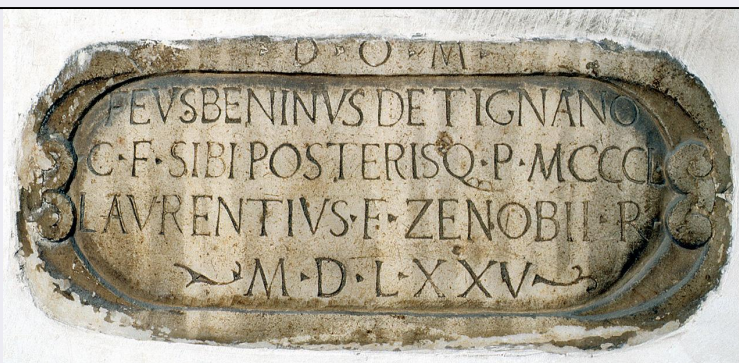 D · O · M
FEVSBENINVS DE TIGNANO
C · F · SIBI POSTERISQ · P · MCCCL
LAVRENTIVS · F · ZENOBII · R ·
M · D · L · X X V